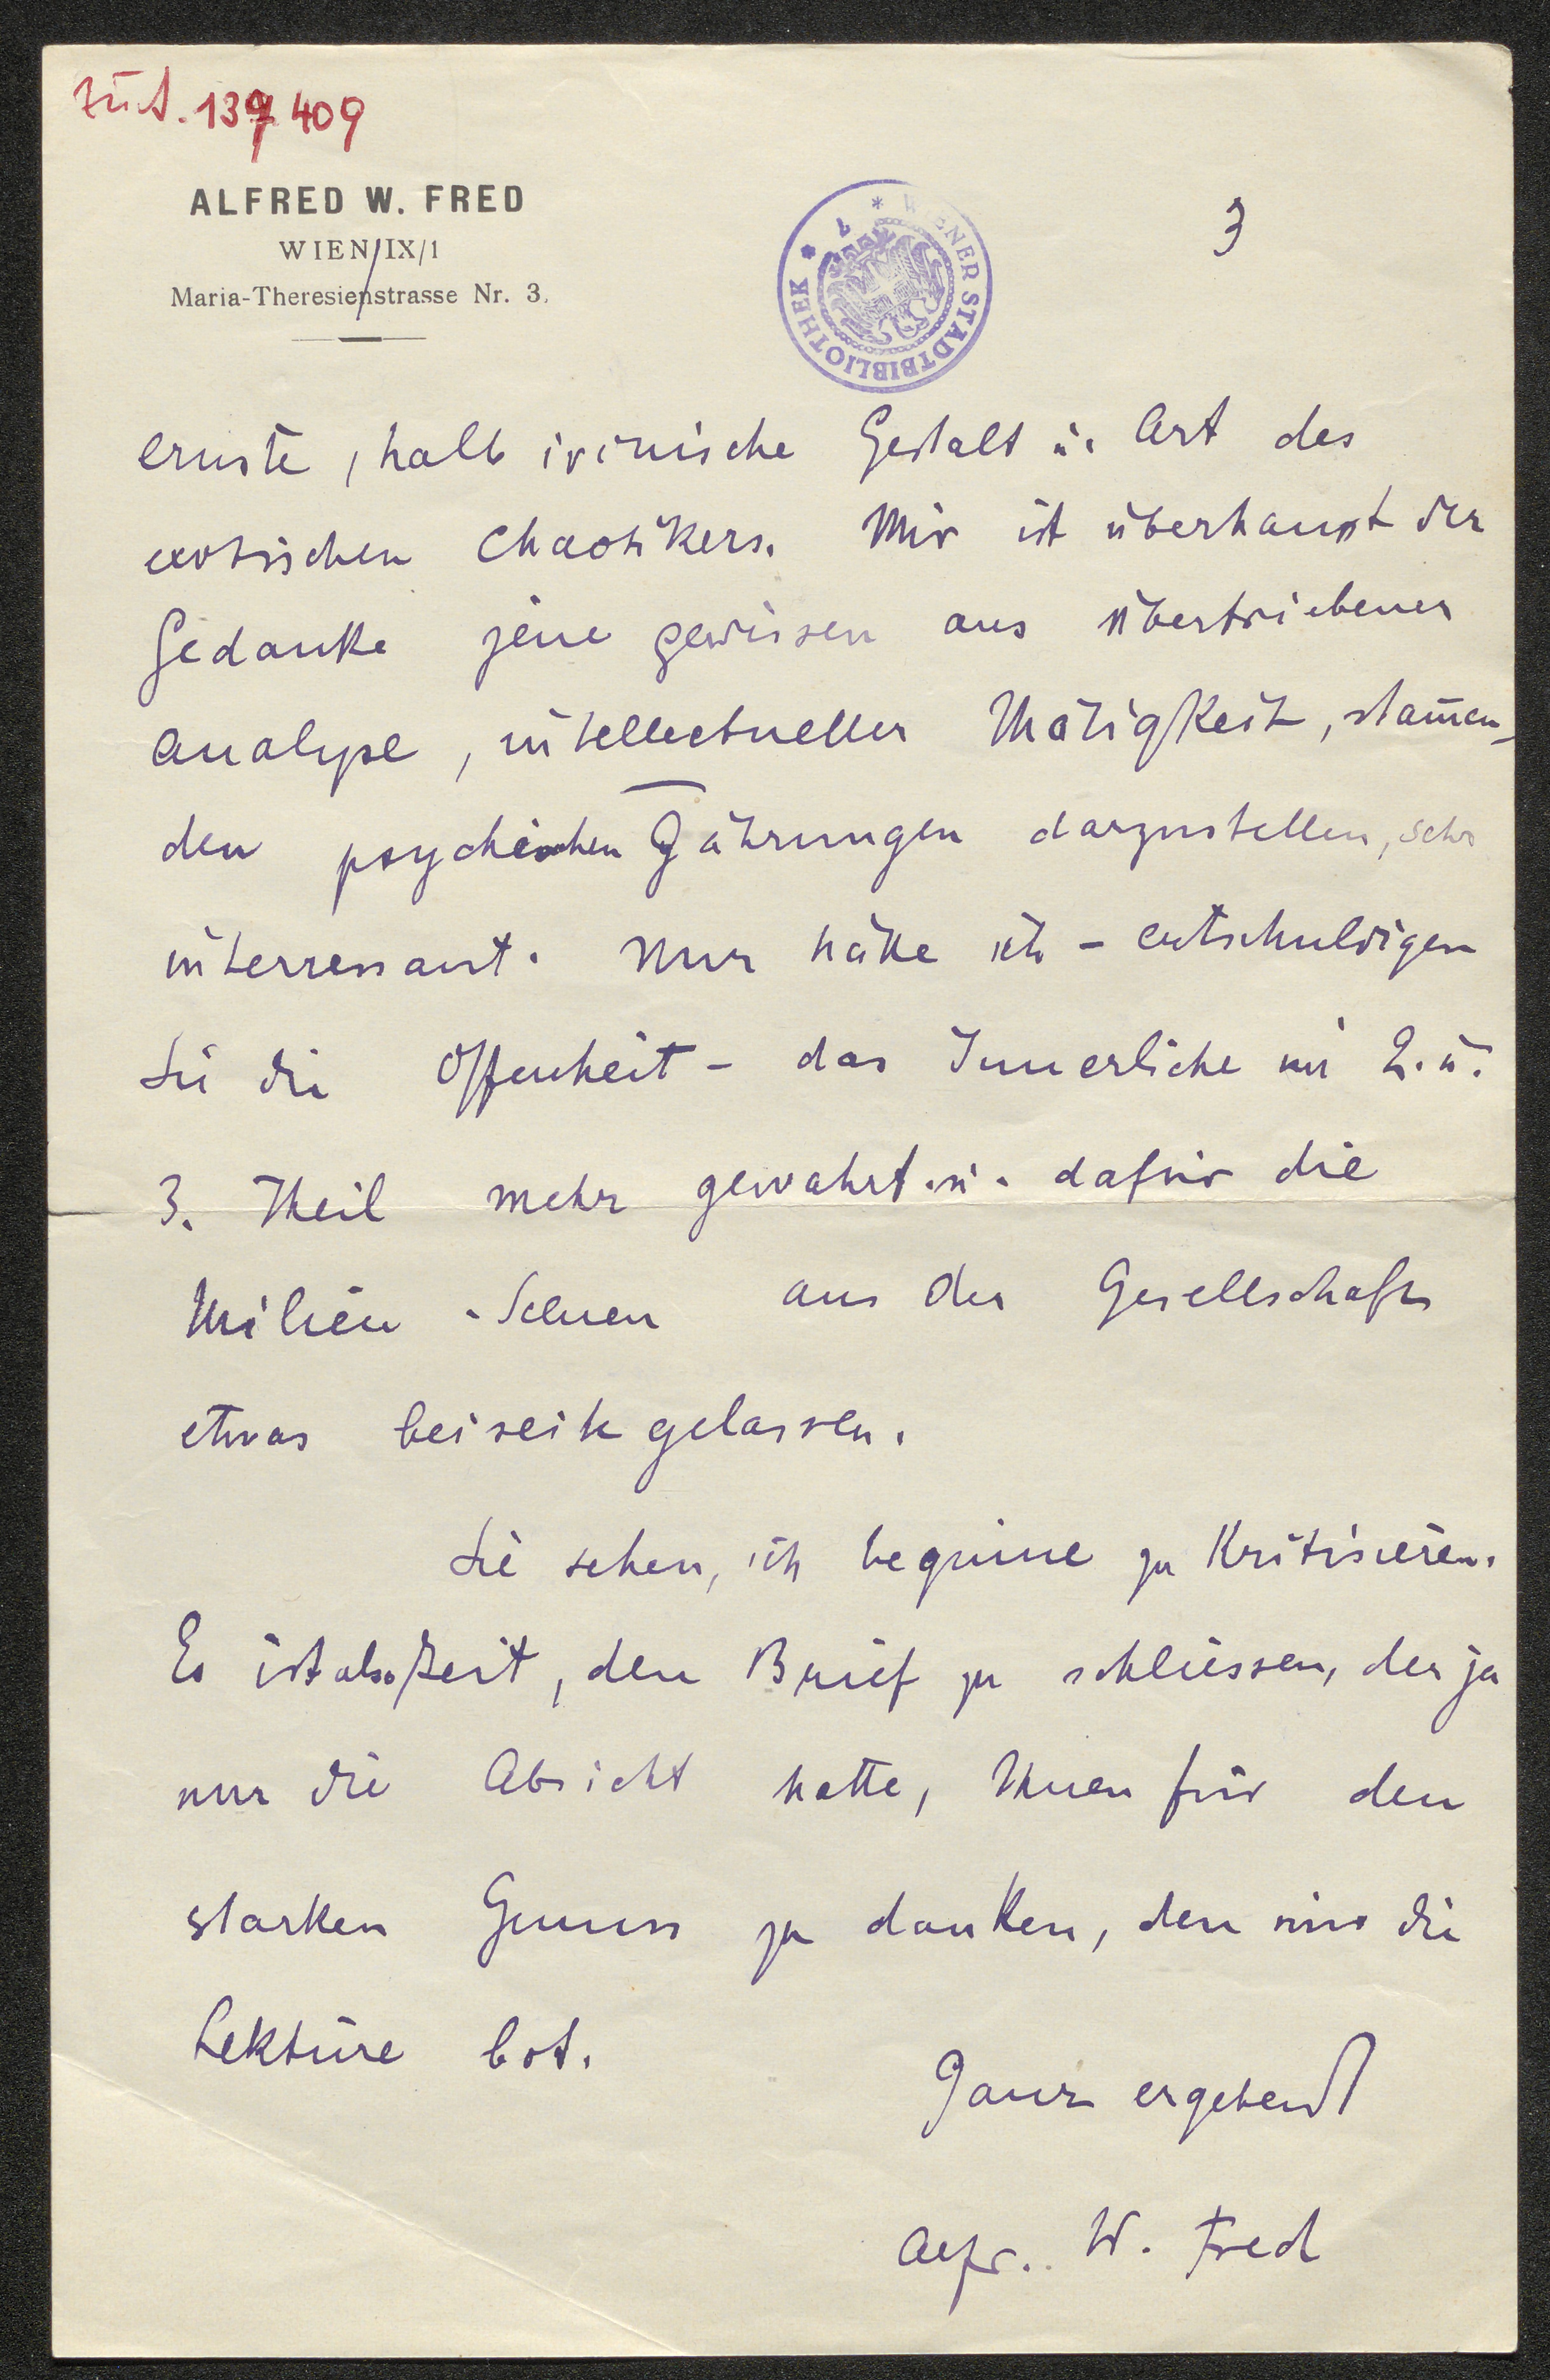 zu A. 137409
ALFRED W. FRED
WIEN/IX/1
Maria-Theresienstrasse Nr. 3.
* WIENER STADTBIBLIOTHEK *
3
ernste, halb ironische Gestalt u. Art des
exotischen Chaotikers. Mir ist überhaupt der
Gedanke jene gewissen aus übertriebener
Analyse, intellectueller Thätigkeit, stam̄en-
den psychischen Gährungen darzustellen, sehr
interressant. Nur hätte ich – entschuldigen
Sie die Offenheit – das Innerliche im 2. u.
3. Theil mehr gewahrt u. dafür die
Milieu-Scenen aus der Gesellschaft
etwas beiseite gelassen.
Sie sehen, ich beginne zu kritisieren.
Es ist also Zeit, den Brief zu schliessen, der ja
nur die Absicht hatte, Ihnen für den
starken Genuss zu danken, den mir die
Lektüre bot.
Ganz ergebenst
Alfr. W. Fred